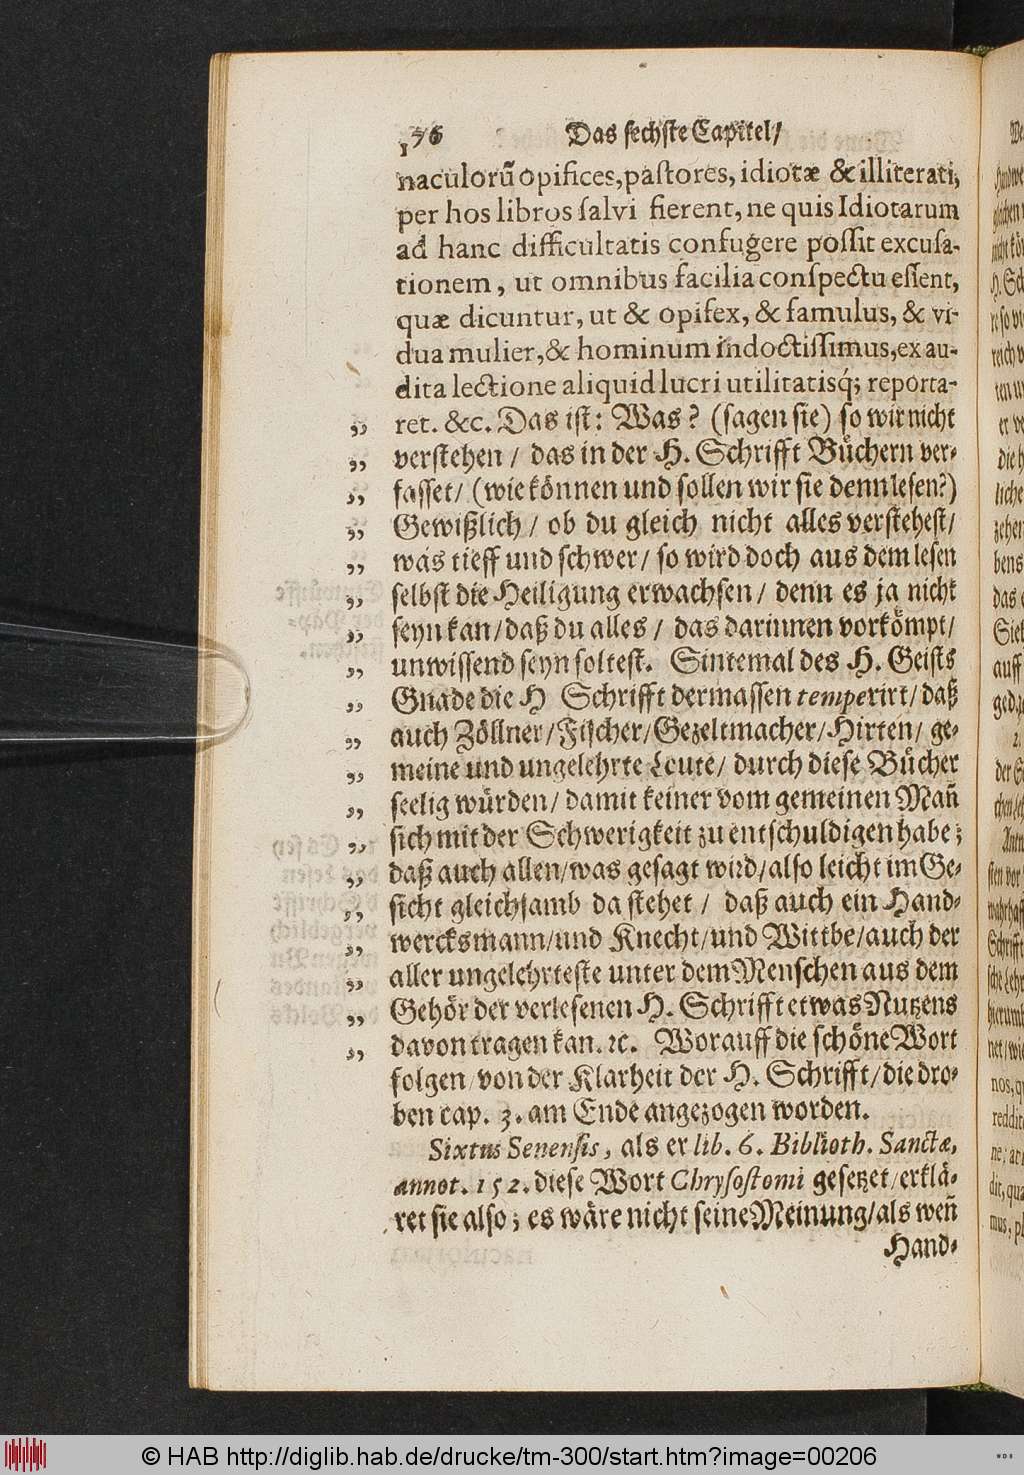 156 Das sechste Capitel/
naculorũ opifices, pastores, idiotæ & illiterati,
per hos libros salvi fierent, ne quis Idiotarum
ad hanc difficultatis confugere possit excusa-
tionem, ut omnibus facilia conspectu essent,
quæ dicuntur, ut & opifex, & famulus, & vi-
dua mulier, & hominum indoctissimus, ex au-
dita lectione aliquid lucri utilitatisq́; reporta-
ret. &c. Das ist: Was? (sagen sie) so wir nicht
„ verstehen / das in der H. Schrifft Büchern ver-
„ fasset/ (wie können und sollen wir sie denn lesen?)
„ Gewißlich / ob du gleich nicht alles verstehest/
„ was tieff und schwer/ so wird doch aus dem lesen
„ selbst die Heiligung erwachsen / denn es ja nicht
„ seyn kan/ daß du alles / das darinnen vorkömpt/
„ unwissend seyn soltest. Sintemal des H. Geists
„ Gnade die H Schrifft dermassen temperirt/ daß
„ auch Zöllner/ Fischer/ Gezeltmacher/ Hirten/ ge-
„ meine und ungelehrte Leute/ durch diese Bücher
„ seelig würden/ damit keiner vom gemeinen Mañ
„ sich mit der Schwerigkeit zu entschuldigen habe;
„ daß auch allen/ was gesagt wird/ also leicht im Ge-
„ sicht gleichsamb da stehet / daß auch ein Hand-
„ wercksmann/ und Knecht/ und Wittbe/ auch der
„ aller ungelehrteste unter dem Menschen aus dem
„ Gehör der verlesenen H. Schrifft etwas Nutzens
„ davon tragen kan. ꝛc. Worauff die schöne Wort
folgen/ von der Klarheit der H. Schrifft/ die dro-
ben cap. 3. am Ende angezogen worden.
Sixtus Senensis, als er lib. 6. Biblioth. Sanctæ,
annot. 152. diese Wort Chrysostomi gesetzet/ erklä-
ret sie also; es wäre nicht seine Meinung/ als weñ
Hand-
© HAB http://diglib.hab.de/drucke/tm-300/start.htm?image=00206